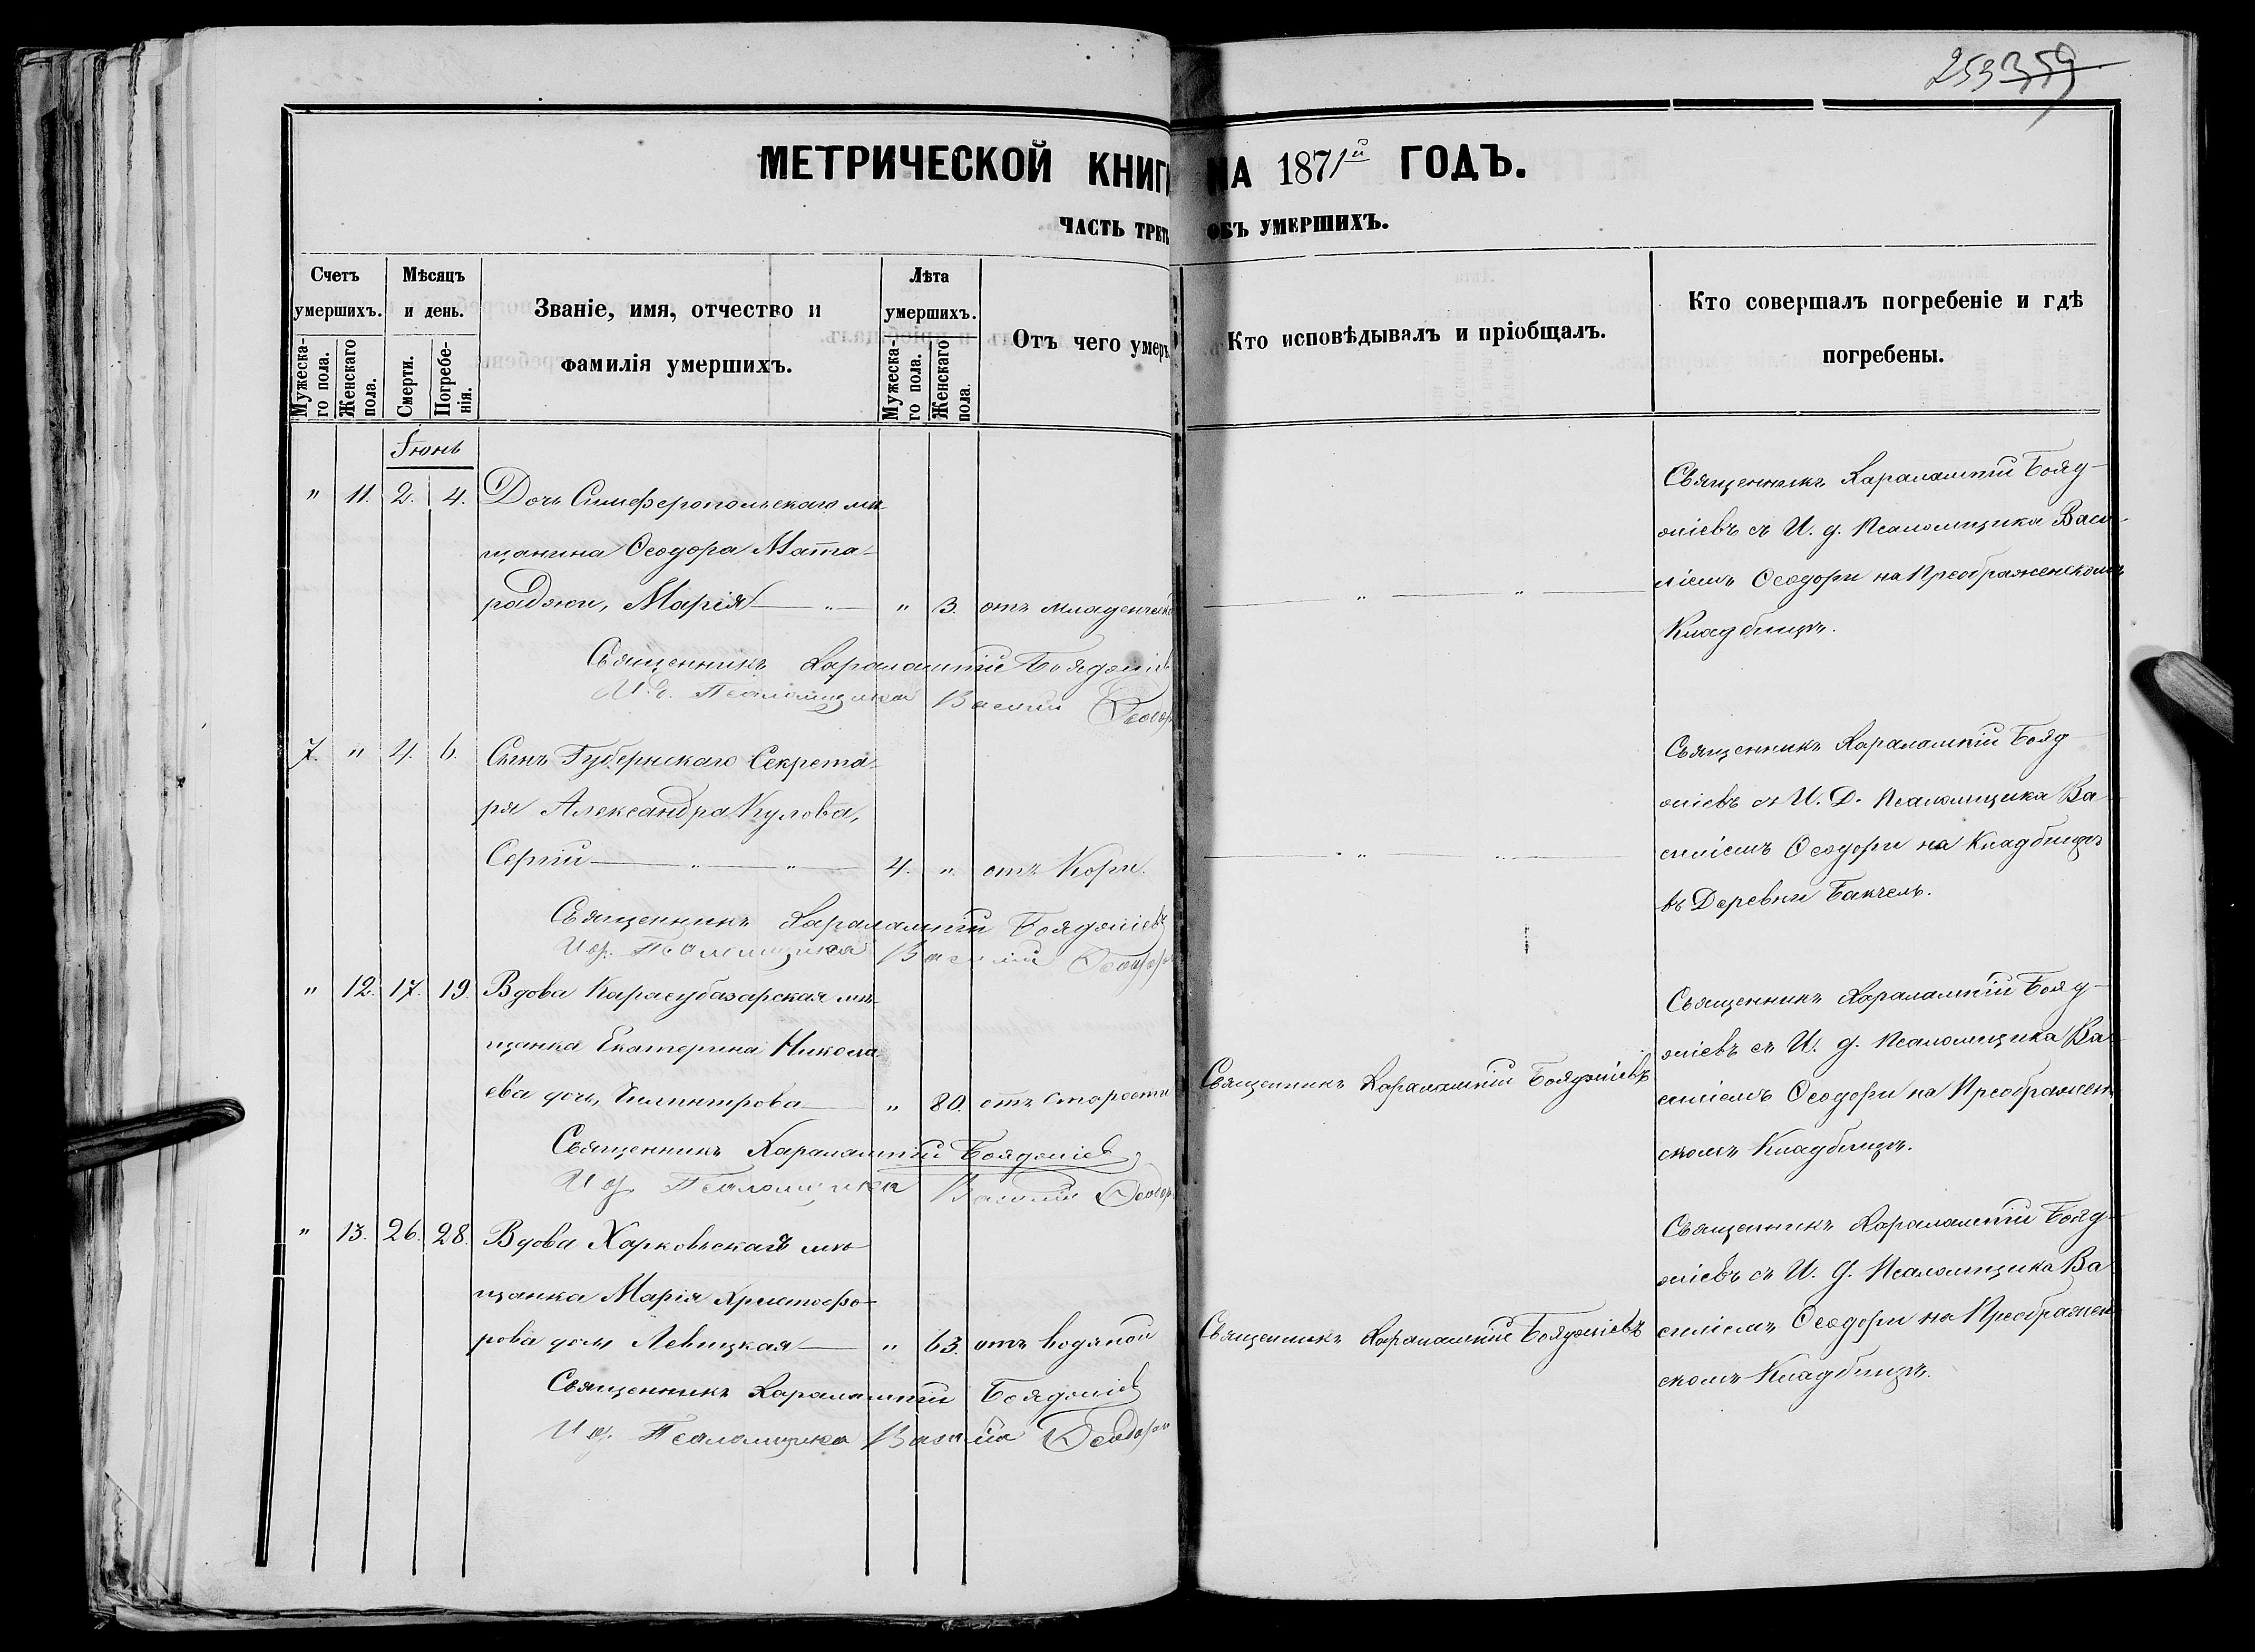 253 359
МЕТРИЧЕСКОЙ КНИГИ НА 1871й ГОДЪ.
ЧАСТЬ ТРЕТЬ ОБЪ УМЕРШИХЪ.
Счетъ умершихъ.
Мужеска-го пола.
Женскаго пола.
Мѣсяцъ и день.
Смерти.
Погребе-нія.
Званіе, имя, отчество и фамилія умершихъ.
Лѣта умершихъ.
Мужеска-го пола.
Женскаго пола.
Отъ чего умеръ
Кто исповѣдывалъ и пріобщалъ.
Кто совершалъ погребеніе и гдѣ погребены.
Іюнь
" 11. 2. 4. Дочь Симферопольскаго мѣ-
щанина Ѳеодора
Марія " " 3. отъ
Священникъ Харалампій Бояджіевъ
И. д. Псаломщика Василій Ѳеодори
Священникъ Харалампій Бояд-
жіевъ съ И. д. Псаломщика Васи-
ліемъ Ѳеодори на Преображенскомъ
Кладбищѣ.
7. " 4. 6. Сынъ Губернскаго Секрета-
ря Александра Кулова,
Сергій " " 4. " отъ Кори.
Священникъ Харалампій Бояджіевъ
И. д. Псаломщика Василій Ѳеодори
Священникъ Харалампій Бояд-
жіевъ съ И. Д. Псаломщика Ва-
силіемъ Ѳеодори на Кладбищѣ
въ Деревни Бакчель.
" 12. 17. 19. Вдова Карасубазарская мѣ-
щанка Екатерина Никола-
ева дочь, " 80. отъ Старости
Священникъ Харалампій Бояджіевъ
И. д. Псаломщика Василій Ѳеодори
Священникъ Харалампій Бояджіевъ
Священникъ Харалампій Бояд-
жіевъ съ И. д. Псаломщика Ва-
силіемъ Ѳеодори на Преображен-
скомъ Кладбищѣ.
" 13. 26. 28. Вдова Харковьская мѣ-
щанка Марія Христофо-
рова дочь Левицкая " 63. отъ водяной
Священникъ Харалампій Бояджіевъ
И. д. Псаломщика Василій Ѳеодори
Священникъ Харалампій Бояджіевъ
Священникъ Харалампій Бояд-
жіевъ съ И. д. Псаломщика Ва-
силіемъ Ѳеодори на Преображен-
скомъ Кладбищѣ.